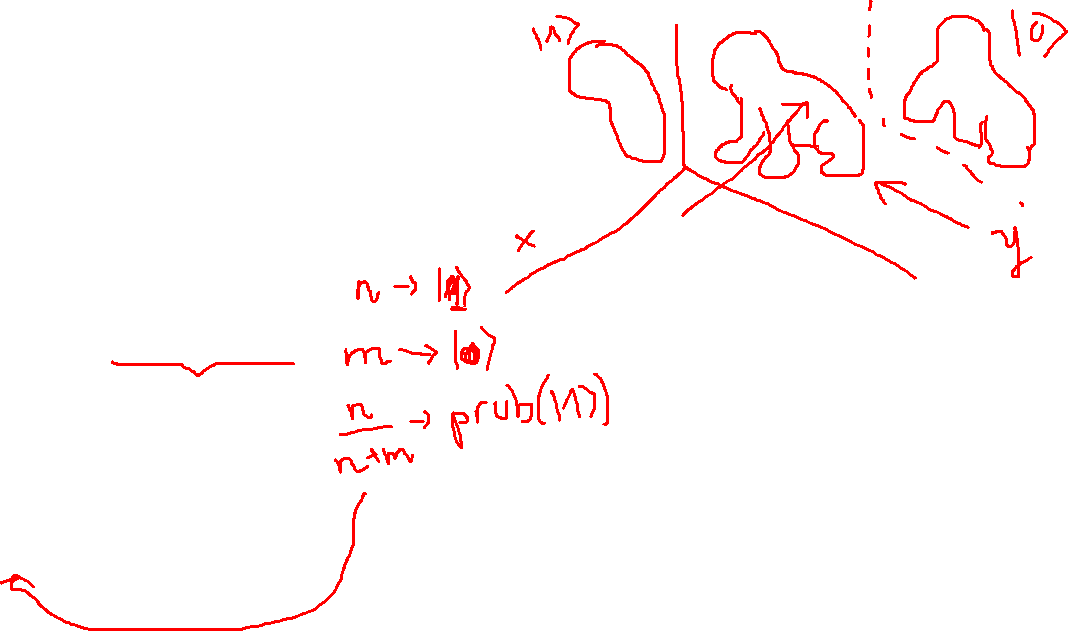 |1⟩
|0⟩
x
y
n → |1⟩
m → |0⟩
n/(n+m) → prob(|1⟩)